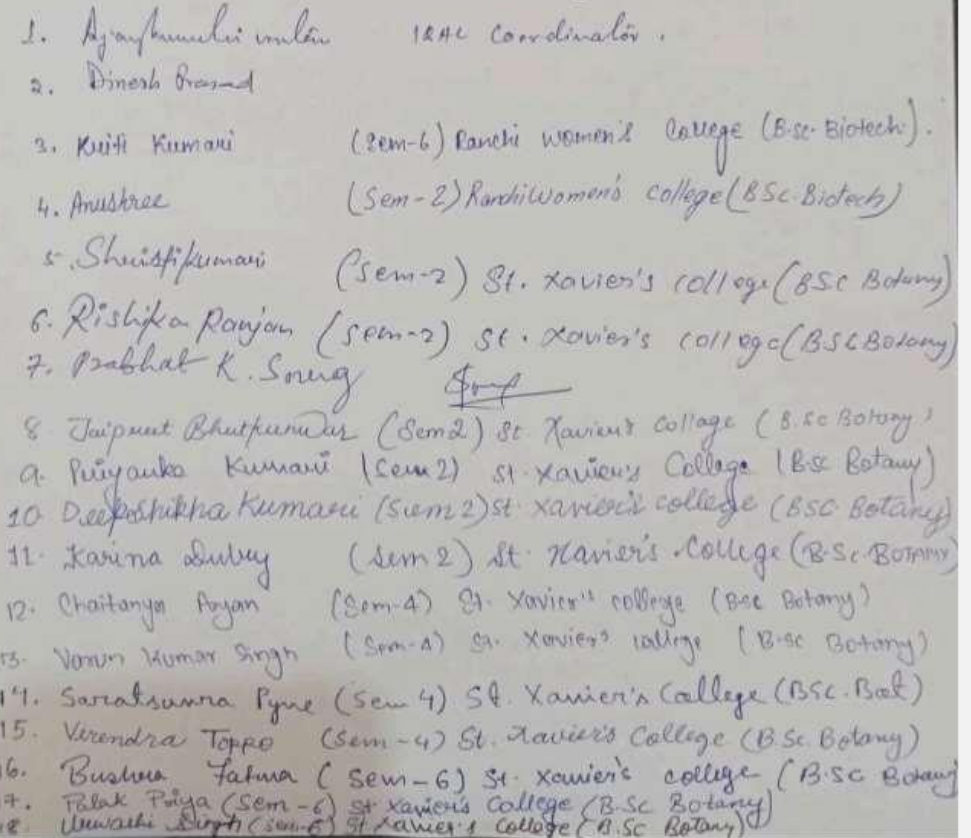 1. IQAC Coordinator.
2. Dinesh Prasad
3. Kriti Kumari (Sem-6) Ranchi women's College (B.sc. Biotech).
4. Anushree (Sem-2) Ranchi Women's college (BSc. Biotech)
5. Shristi kumari (Sem-2) St. Xavier's college (BSc Botany)
6. Rishika Ranjan (Sem-2) St. Xavier's college (BSc Botany)
7. Prabhat K. Soreng
8 Bhutkunwar (Sem2) St. Xavier's Collage (B.sc Botany)
9. Priyanka Kumari (Sem2) St. Xavier's College (B.sc Botany)
10. Deepshikha Kumari (Sem2) st. xavier's college (BSC Botany)
11. Karina Dubey (Sem 2) St. Xavier's College (B.Sc. BOTANY)
12. Chaitanya Aryan (Sem-4) St. Xavier's college (Bsc Botany)
13. Varun Kumar Singh (Sem-4) St. Xavier's college (B.sc Botany)
14. Pyne (Sem 4) St. Xavier's College (BSc. Bot)
15. Virendra Toppo (Sem-4) St. Xavier's College (B.Sc. Botany)
16. Bushra Fatma (Sem-6) St. Xavier's college (B.SC Botany)
17. Palak Priya (Sem-6) St Xavier's College (B.Sc Botany)
18. Urwashi Singh (Sem-6) St Xavier's College (B.Sc Botany)